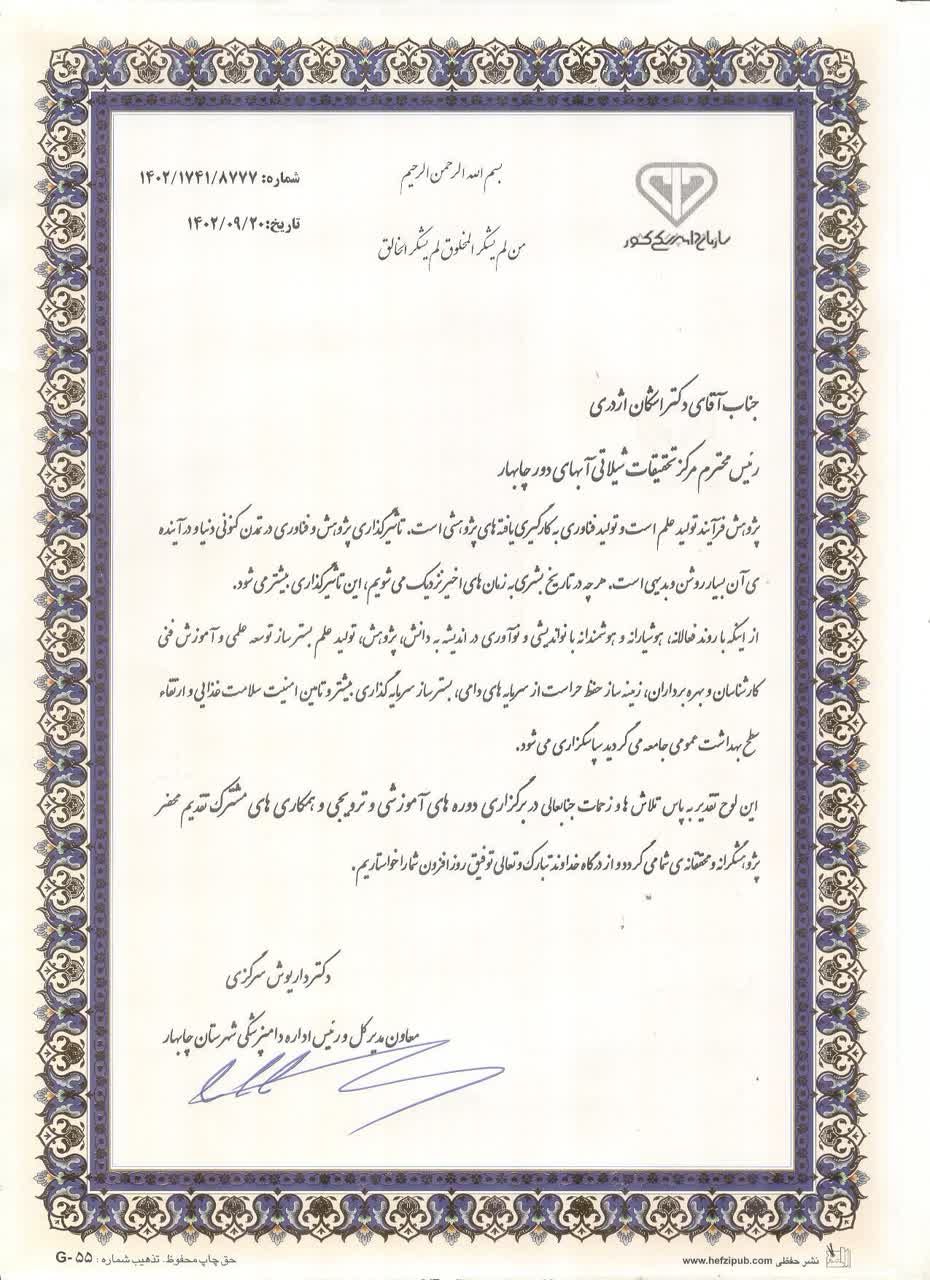 بسم الله الرحمن الرحیم
شماره: ۱۴۰۲/۱۷۴۱/۸۷۷۷
من لم یشکر المخلوق لم یشکر الخالق
تاریخ: ۱۴۰۲/۰۹/۲۰
سازمان دامپزشکی کشور
جناب آقای دکتر اشکان اژدری
رئیس محترم مرکز تحقیقات شیلاتی آبهای دور چابهار
پژوهش فرآیند تولید علم است و تولید فناوری به کارگیری یافته های پژوهشی است. تأثیرگذاری پژوهش و فناوری در تمدن کنونی دنیا و در آینده
ی آن بسیار روشن و بدیهی است. هر چه در تاریخ بشری به زمان های اخیر نزدیک می شویم، این تأثیرگذاری بیشتر می شود.
از اینکه با روند فعالانه، هوشیارانه و هوشمندانه با نواندیشی و نوآوری در اندیشه به دانش، پژوهش، تولید علم بستر ساز توسعه علمی و آموزش فنی
کارشناسان و بهره برداران، زمینه ساز حفظ حراست از سرمایه های دامی، بستر ساز سرمایه گذاری بیشتر و تامین امنیت سلامت غذایی و ارتقاء
سطح بهداشت عمومی جامعه می گردید سپاسگزاری می شود.
این لوح تقدیر به پاس تلاش ها و زحمات جنابعالی در برگزاری دوره های آموزشی و ترویجی و همکاری های مشترک تقدیم محضر
پژوهشگرانه و محققانه ی شما می گردد و از درگاه خداوند تبارک و تعالی توفیق روز افزون شما را خواستاریم.
دکتر داریوش سرگزی
معاون مدیر کل و رئیس اداره دامپزشکی شهرستان چابهار
نشر حفظی www.hefzipub.com
حق چاپ محفوظ. تذهیب شماره: G-۵۵